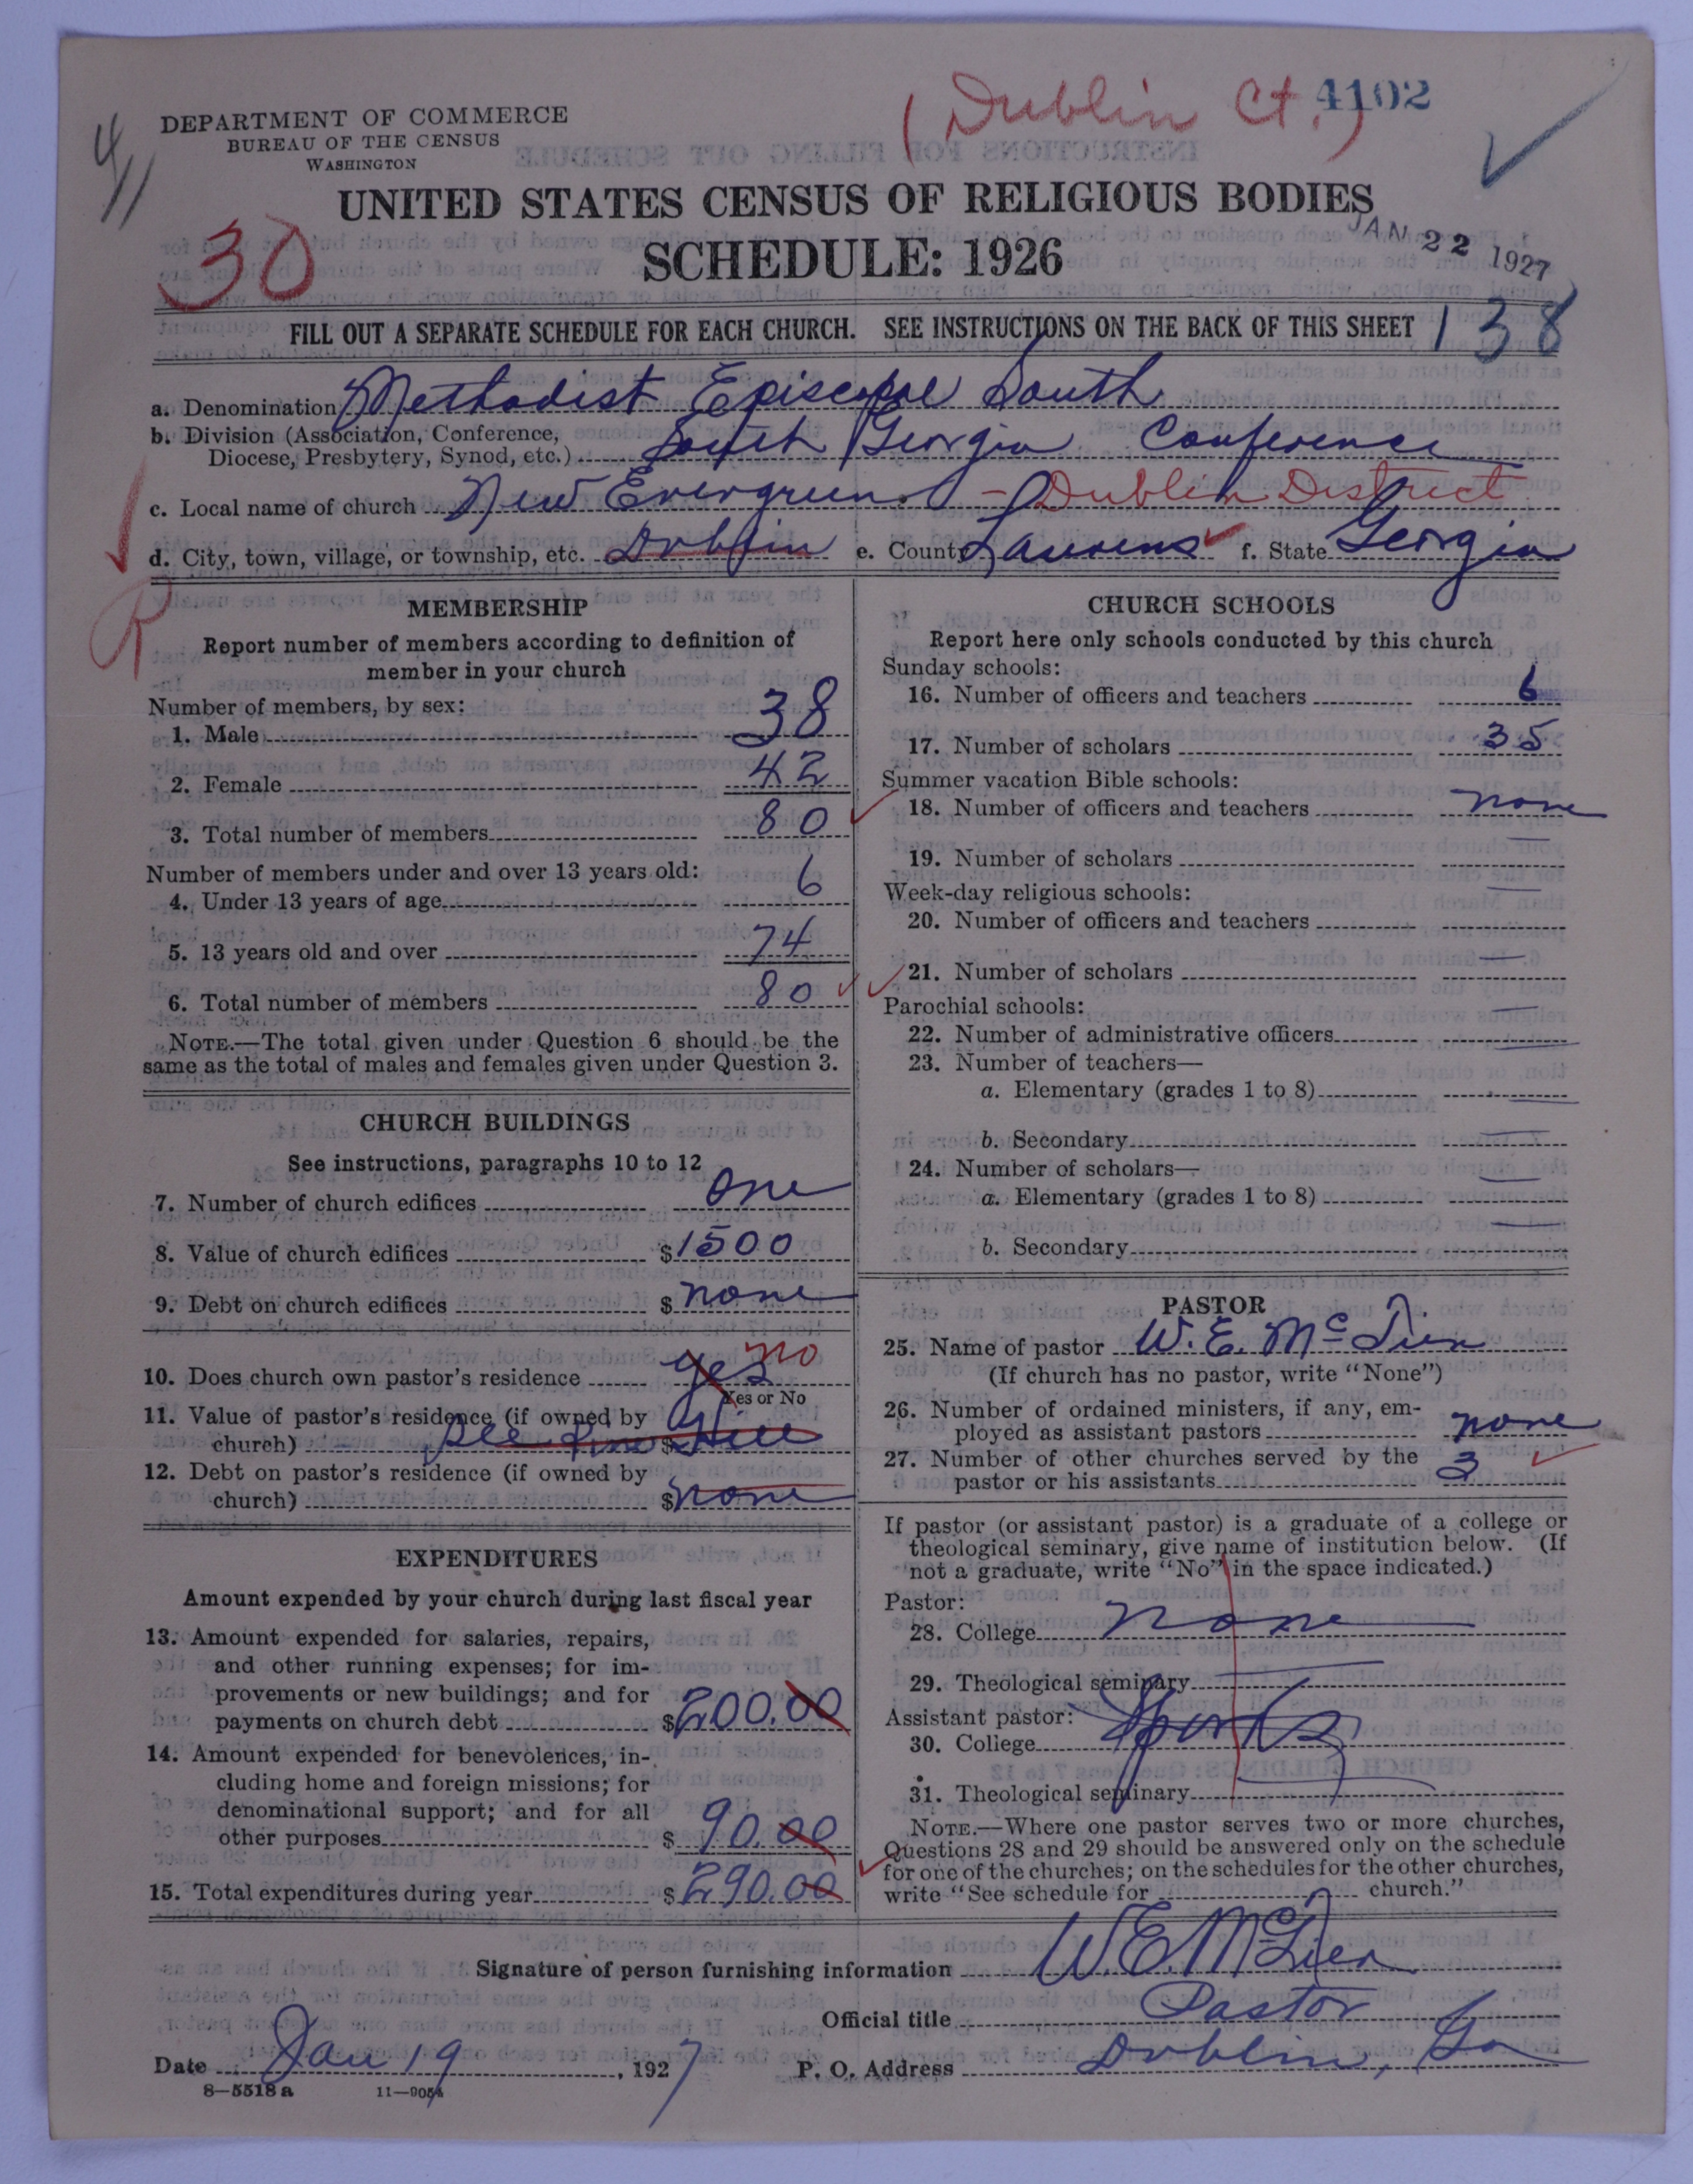 (Dublin Ct.) 4102
4/11
DEPARTMENT OF COMMERCE
BUREAU OF THE CENSUS
WASHINGTON
UNITED STATES CENSUS OF RELIGIOUS BODIES
JAN 22 1927
30
SCHEDULE: 1926
FILL OUT A SEPARATE SCHEDULE FOR EACH CHURCH. SEE INSTRUCTIONS ON THE BACK OF THIS SHEET
138
a. Denomination Methodist Episcopal South
b. Division (Association, Conference, Diocese, Presbytery, Synod, etc.) South Georgia Conference
c. Local name of church New Evergreen - Dublin District
d. City, town, village, or township, etc. Dublin e. County Laurens f. State Georgia
R
MEMBERSHIP
Report number of members according to definition of
member in your church
Number of members, by sex:
1. Male 38
2. Female 42
3. Total number of members 80
Number of members under and over 13 years old:
4. Under 13 years of age 6
5. 13 years old and over 74
6. Total number of members 80
NOTE.—The total given under Question 6 should be the
same as the total of males and females given under Question 3.
CHURCH BUILDINGS
See instructions, paragraphs 10 to 12
7. Number of church edifices One
8. Value of church edifices $1500
9. Debt on church edifices $ none
10. Does church own pastor's residence yes no
Yes or No
11. Value of pastor's residence (if owned by
church) See Pine $ Hill
12. Debt on pastor's residence (if owned by
church) $ none
EXPENDITURES
Amount expended by your church during last fiscal year
13. Amount expended for salaries, repairs,
and other running expenses; for im-
provements or new buildings; and for
payments on church debt $200.00
14. Amount expended for benevolences, in-
cluding home and foreign missions; for
denominational support; and for all
other purposes $ 90.00
15. Total expenditures during year $290.00
CHURCH SCHOOLS
Report here only schools conducted by this church
Sunday schools:
16. Number of officers and teachers 6
17. Number of scholars 35
Summer vacation Bible schools:
18. Number of officers and teachers none
19. Number of scholars —
Week-day religious schools:
20. Number of officers and teachers —
21. Number of scholars —
Parochial schools:
22. Number of administrative officers —
23. Number of teachers—
a. Elementary (grades 1 to 8) —
b. Secondary —
24. Number of scholars—
a. Elementary (grades 1 to 8) —
b. Secondary —
PASTOR
25. Name of pastor W. E. McTier
(If church has no pastor, write "None")
26. Number of ordained ministers, if any, em-
ployed as assistant pastors none
27. Number of other churches served by the
pastor or his assistants 3
If pastor (or assistant pastor) is a graduate of a college or
theological seminary, give name of institution below. (If
not a graduate, write "No" in the space indicated.)
Pastor:
28. College none
29. Theological seminary
Assistant pastor:
30. College
31. Theological seminary
NOTE.—Where one pastor serves two or more churches,
Questions 28 and 29 should be answered only on the schedule
for one of the churches; on the schedules for the other churches,
write "See schedule for church."
Signature of person furnishing information W. E. McTier
Official title Pastor
Date Jan 19, 1927 P. O. Address Dublin, Ga
8—5518 a 11—9054